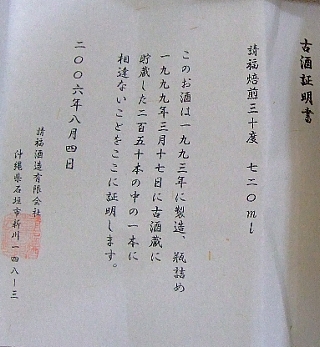 古酒証明書
請福焙煎三十度　七二〇ml
このお酒は一九九三年に製造、瓶詰め
一九九九年三月十七日に古酒蔵に
貯蔵した二百五十本の中の一本に
相違ないことをここに証明します。
二〇〇六年八月四日
請福酒造有限会社
沖縄県石垣市新川一四八ー三